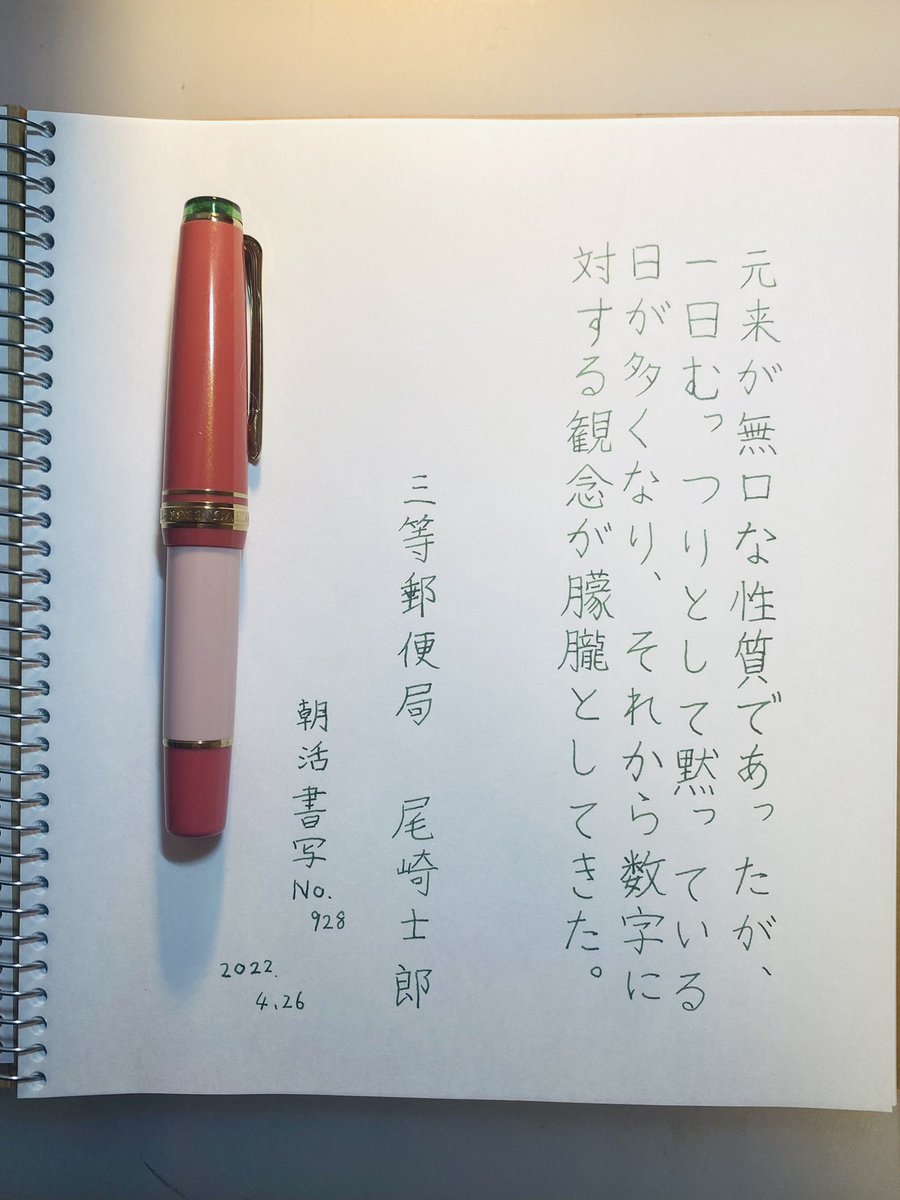 元来が無口な性質であったが、
一日むっつりとして黙っている
日が多くなり、それから数字に
対する観念が朦朧としてきた。
三等郵便局 尾崎士郎
朝活書写
No.
928
2022.
4.26